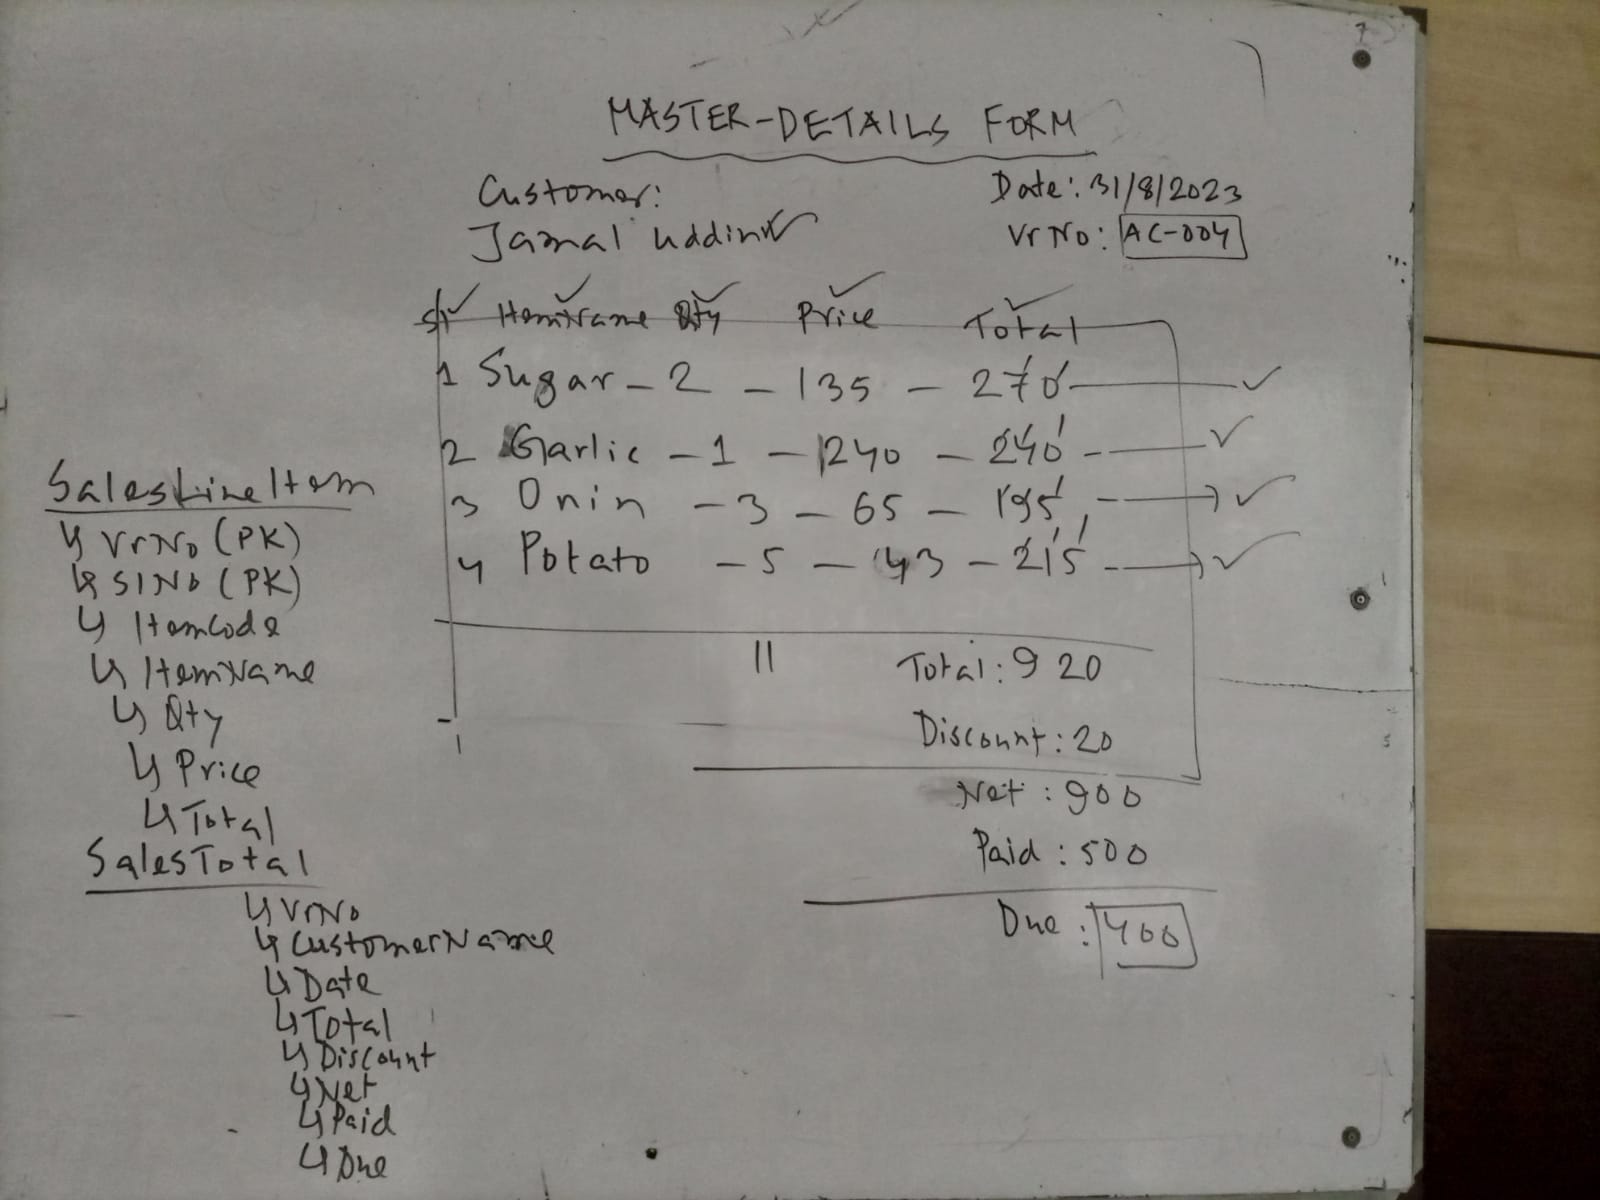 MASTER-DETAILS FORM
Customer:
Jamal Uddin
Date: 31/8/2023
Vr No: AC-004
Sl ItemName Qty Price Total
1 Sugar - 2 - 135 - 270
2 Garlic - 1 - 240 - 240
3 Onin - 3 - 65 - 195
4 Potato - 5 - 43 - 215
11 Total: 920
Discount: 20
Net: 900
Paid: 500
Due: 400
SalesLineItem
↳ VrNo (PK)
↳ SlNo (PK)
↳ ItemCode
↳ ItemName
↳ Qty
↳ Price
↳ Total
SalesTotal
↳ VrNo
↳ CustomerName
↳ Date
↳ Total
↳ Discount
↳ Net
↳ Paid
↳ Due